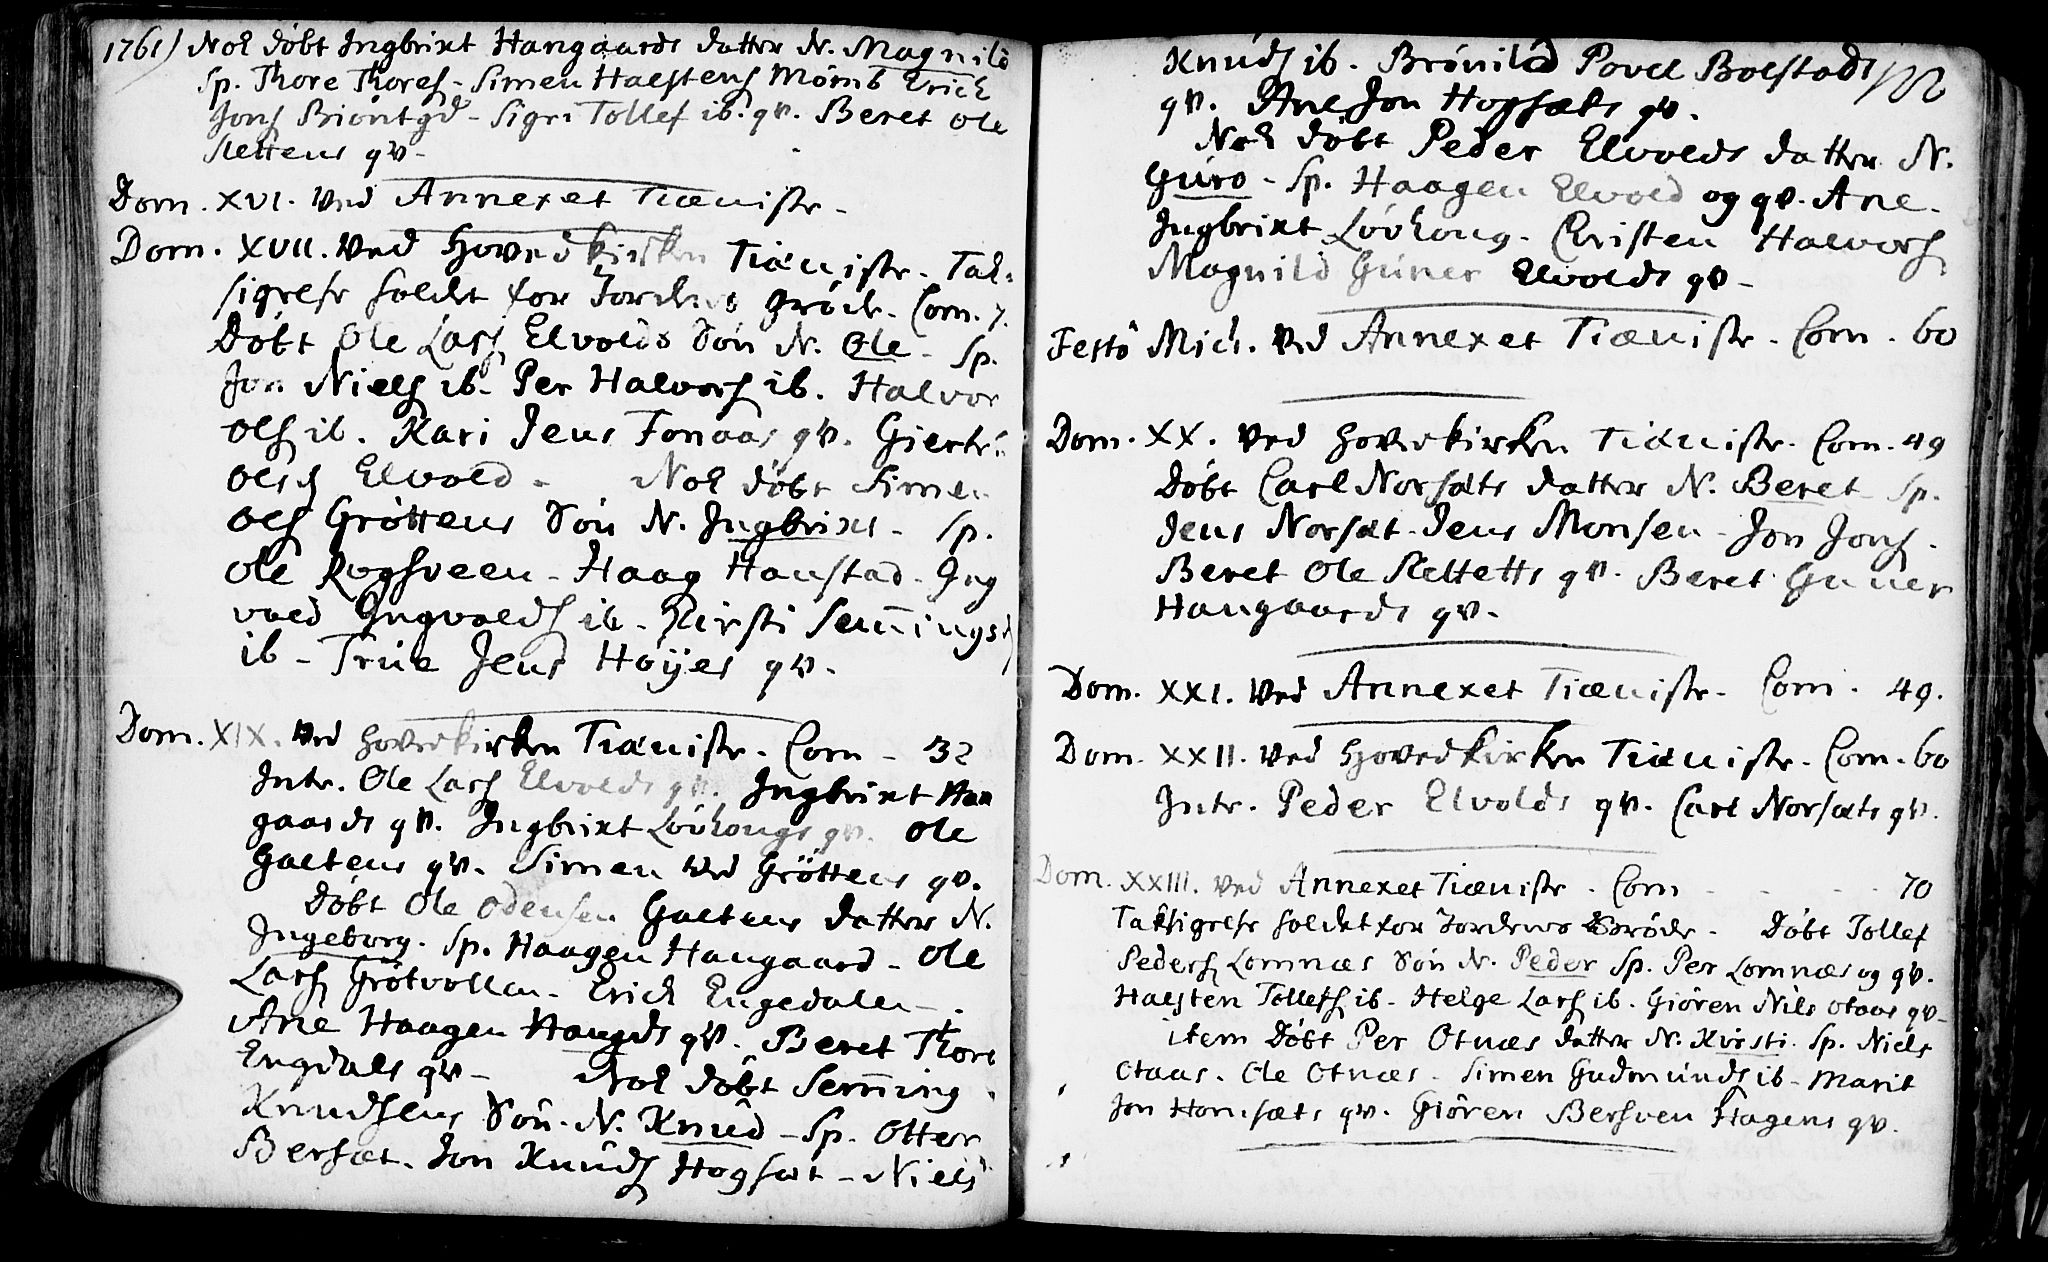 1761) Nok døbt Ingbrixt Hangaards datter N. Magnild
Sp. Thore Thores. - Simen Halstens Mømb Erich
Jons Biöntgd - Sigri Tollef ib. qv. Beret Ole
Slettens qv -
Dom. XVI. ved Annexet Tieniste -
Dom. XVII. ved Hovedkirken Tieniste - Tak-
sigelse holdt for Jordens Gröde. Com. 7.
Døbt Ole Lars. Elvolds Sön N. Ole - Sp.
Jon Niels. ib. Per Halvors. ib. Halvor
Ols. ib. Kari Jens Fonaas qv. Giertr:
Olsd. Elvold - Nok døbt Simen
Ols. Gröttens Sön N. Ingbrixt - Sp.
Ole Rogsveen - Haag Hanstad - Ing
vald Ingvalds. ib - Kirsti Semingsd
ib - Trüe Jens Höyes qv.
Dom. XIX. ved Hovedkirken Tieniste. Com - 32
Intr. Ole Lars. Elvolds qv. Ingbrixt Han
gaards qv. Ingbrixt Lövhougs qv. Ole
Galtens qv. Simen ved Gröttens qv.
Døbt Ole Odensen Galtens datter N.
Ingeborg. Sp. Haagen Hangaard - Ole
Lars. Grötvollen - Erich Engedalen -
Ane Haagen Haugds qv. Beret Thore
Engdals qv - Nok døbt Semming
Knudsens Sön. N. Knud - Sp. Otter
Bersæt. Jon Knuds. Hogsæt - Niels
Knuds. ib. Brönild Povel Bolstads
qv. Ane Jon Hogsæts qv.
Nok døbt Peder Elvolds datter N.
Guro - Sp. Haagen Elvold og qv. Ane
Ingbrixt Lövhoug. Christen Halvors.
Magnild Guner Elvolds qv -
Festo Mich. ved Annexet Tieniste - Com. 60
Dom. XX. ved Hovedkirken Tieniste. Com. 49
Døbt Carl Norsæts datter N. Beret Sp.
Jens Norsæt - Jens Monsen - Jon Jons.
Beret Ole Slettens qv. Beret Guner
Hangaards qv.
Dom. XXI. ved Annexet Tieniste - Com. 49.
Dom. XXII. ved Hovedkirken Tieniste. Com. 60
Intr. Peder Elvolds qv. Carl Norsæts qv.
Dom. XXIII. ved Annexet Tieniste. Com - - - 70
Taksigelse holdet for Jordens Gröde - Døbt Tollef
Peders. Lomnæs Sön N. Peder Sp. Per Lomnæs og qv.
Halsten Tollefs. ib - Helge Lars. ib. Giören Nils Otaas qv -
item Døbt Per Otnæs datter N. Kirsti. Sp. Niels
Otaas. Ole Otnæs - Simen Gudmunds. ib - Marit
Jon Homsæts qv. Giören Bersven Hagens qv.